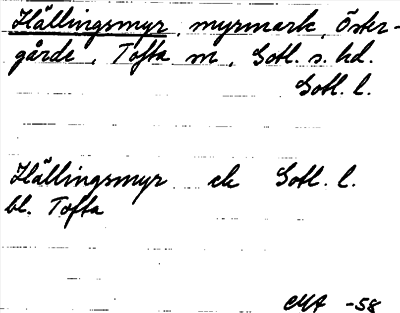 Hällingsmyr, myrmark, Öster-
gårde, Tofta sn, Gotl. s. hd.
Gotl. l.
Hällingsmyr ek Gotl. l.
bl. Tofta
CMA -58